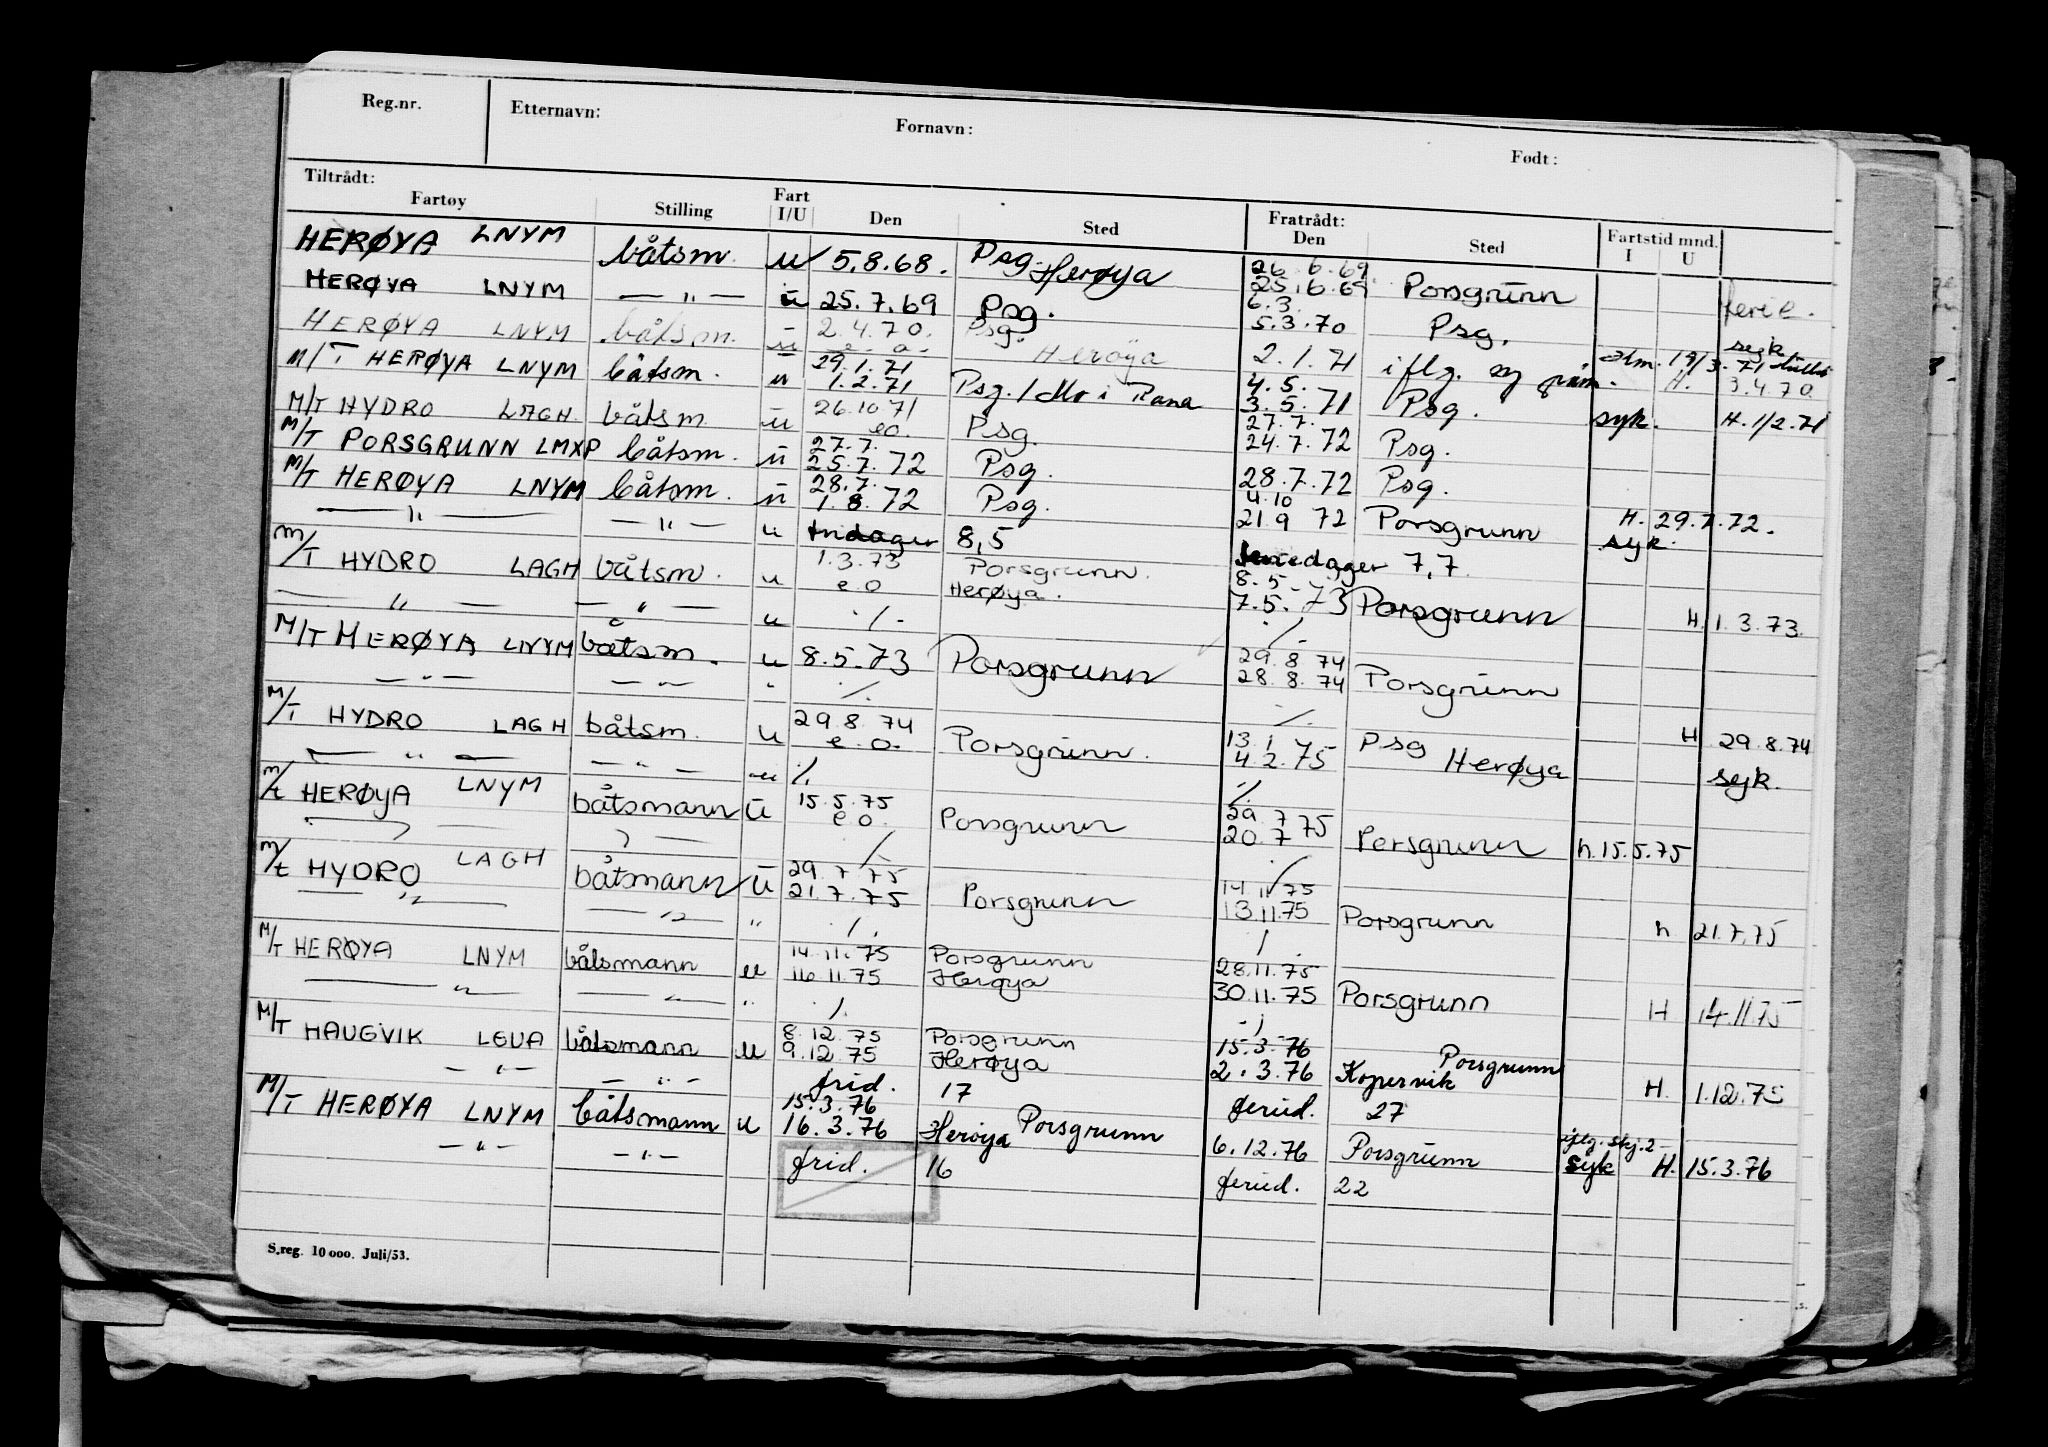 Reg.nr. Etternavn: Fornavn: Født:
Tiltrådt: Fratrådt:
Fartøy Stilling Fart I/U Den Sted Den Sted Fartstid mnd. I U
HERØYA LNYM båtsm. u 5.8.68. Psg. Herøya 26.6.69 25.6.69 Porsgrunn ferie.
HERØYA LNYM — " — u 25.7.69 Psg. 6.3. 5.3.70 Psg. syk
HERØYA LNYM båtsm. u 2.4.70. e.o. Psg. Herøya 2.1.71 iflg. H. 3.4.70
M/T HERØYA LNYM båtsm. u 29.1.71 1.2.71 Psg. / Mo i Rana 4.5. 3.5.71 Psg. syk. H. 1/2.71
M/T HYDRO LAGH båtsm. u 26.10.71 eo. Psg. 27.7. 24.7.72 Psg.
M/T PORSGRUNN LMXP båtsm. u 27.7. 25.7.72 Psg. 28.7.72 Psg.
M/T HERØYA LNYM båtsm. u 28.7. 1.8.72 Psg. 4.10 21.9 72 Porsgrunn H. 29.7.72. syk.
— " — — " — u fridager 8,5 feriedager 7,7
M/T HYDRO LAGH båtsm. u 1.3.73 e.o Porsgrunn. Herøya. 8.5- 7.5.-73 Porsgrunn H. 1.3.73.
— " — — " — u ./. ./.
M/T HERØYA LNYM båtsm. u 8.5.73 Porsgrunn 29.8 74 28.8.74 Porsgrunn
— " — — " — " ./. ./.
M/T HYDRO LAGH båtsm. u 29.8.74 e.o. Porsgrunn. 13.1 4.2.75 Psg Herøya H 29.8.74 syk.
— " — — " — u ./. ./.
m/t HERØYA LNYM båtsmann u 15.5.75 e.o. Porsgrunn 29.7 75 20.7 Porsgrunn h. 15.5.75
— " — — " — ./. ./.
m/t HYDRO LAGH båtsmann u 29.7.75 21.7.75 Porsgrunn 14.11.75 13.11.75 Porsgrunn h 21.7.75
— " — — " — " ./. ./.
M/T HERØYA LNYM båtsmann u 14.11.75 16.11.75 Porsgrunn Herøya 28.11.75 30.11.75 Porsgrunn H 14.11.75
— " — — " — " ./. ./.
M/T HAUGVIK LGUA båtsmann u 8.12.75 9.12.75 Porsgrunn Herøya 15.3.76 2.3.76 Porsgrunn Kopervik H. 1.12.75
— " — — " — frid. 17 feried. 27
M/T HERØYA LNYM båtsmann u 15.3.76 16.3.76 Herøya Porsgrunn 6.12.76 Porsgrunn iflg. skj.2 syk H. 15.3.76
— " — — " — frid. 16 feried. 22
S.reg. 10 000. Juli/53.